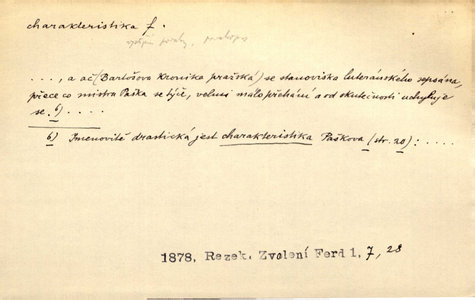 charakteristika f.
..., a ač (Bartošova Kronika pražská) se stanoviska luteránského sepsána,
přece co mistra Paška se týče, velmi málo přehání a od skutečnosti uchyluje
se. 6) ....
6) Jmenovitě drastická jest charakteristika Paškova (str. 20): ....
1878, Rezek, Zvolení Ferd 1, 7, 28